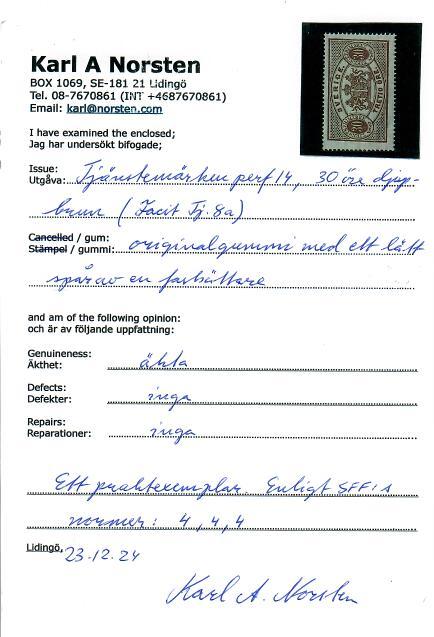 Karl A Norsten
BOX 1069, SE-181 21 Lidingö
Tel. 08-7670861 (INT +4687670861)
Email: karl@norsten.com
I have examined the enclosed;
Jag har undersökt bifogade;
Issue:
Utgåva: Tjänstemärken perf 14, 30 öre djup-
brun (Facit Tj. 8a)
Cancelled / gum:
Stämpel / gummi: originalgummi med ett lätt
spår av en fasthättare
and am of the following opinion:
och är av följande uppfattning:
Genuineness:
Äkthet: äkta
Defects:
Defekter: inga
Repairs:
Reparationer: inga
Ett praktexemplar. Enligt SFF:s
normer: 4, 4, 4
Lidingö, 23.12.24
Karl A. Norsten
SVERIGE